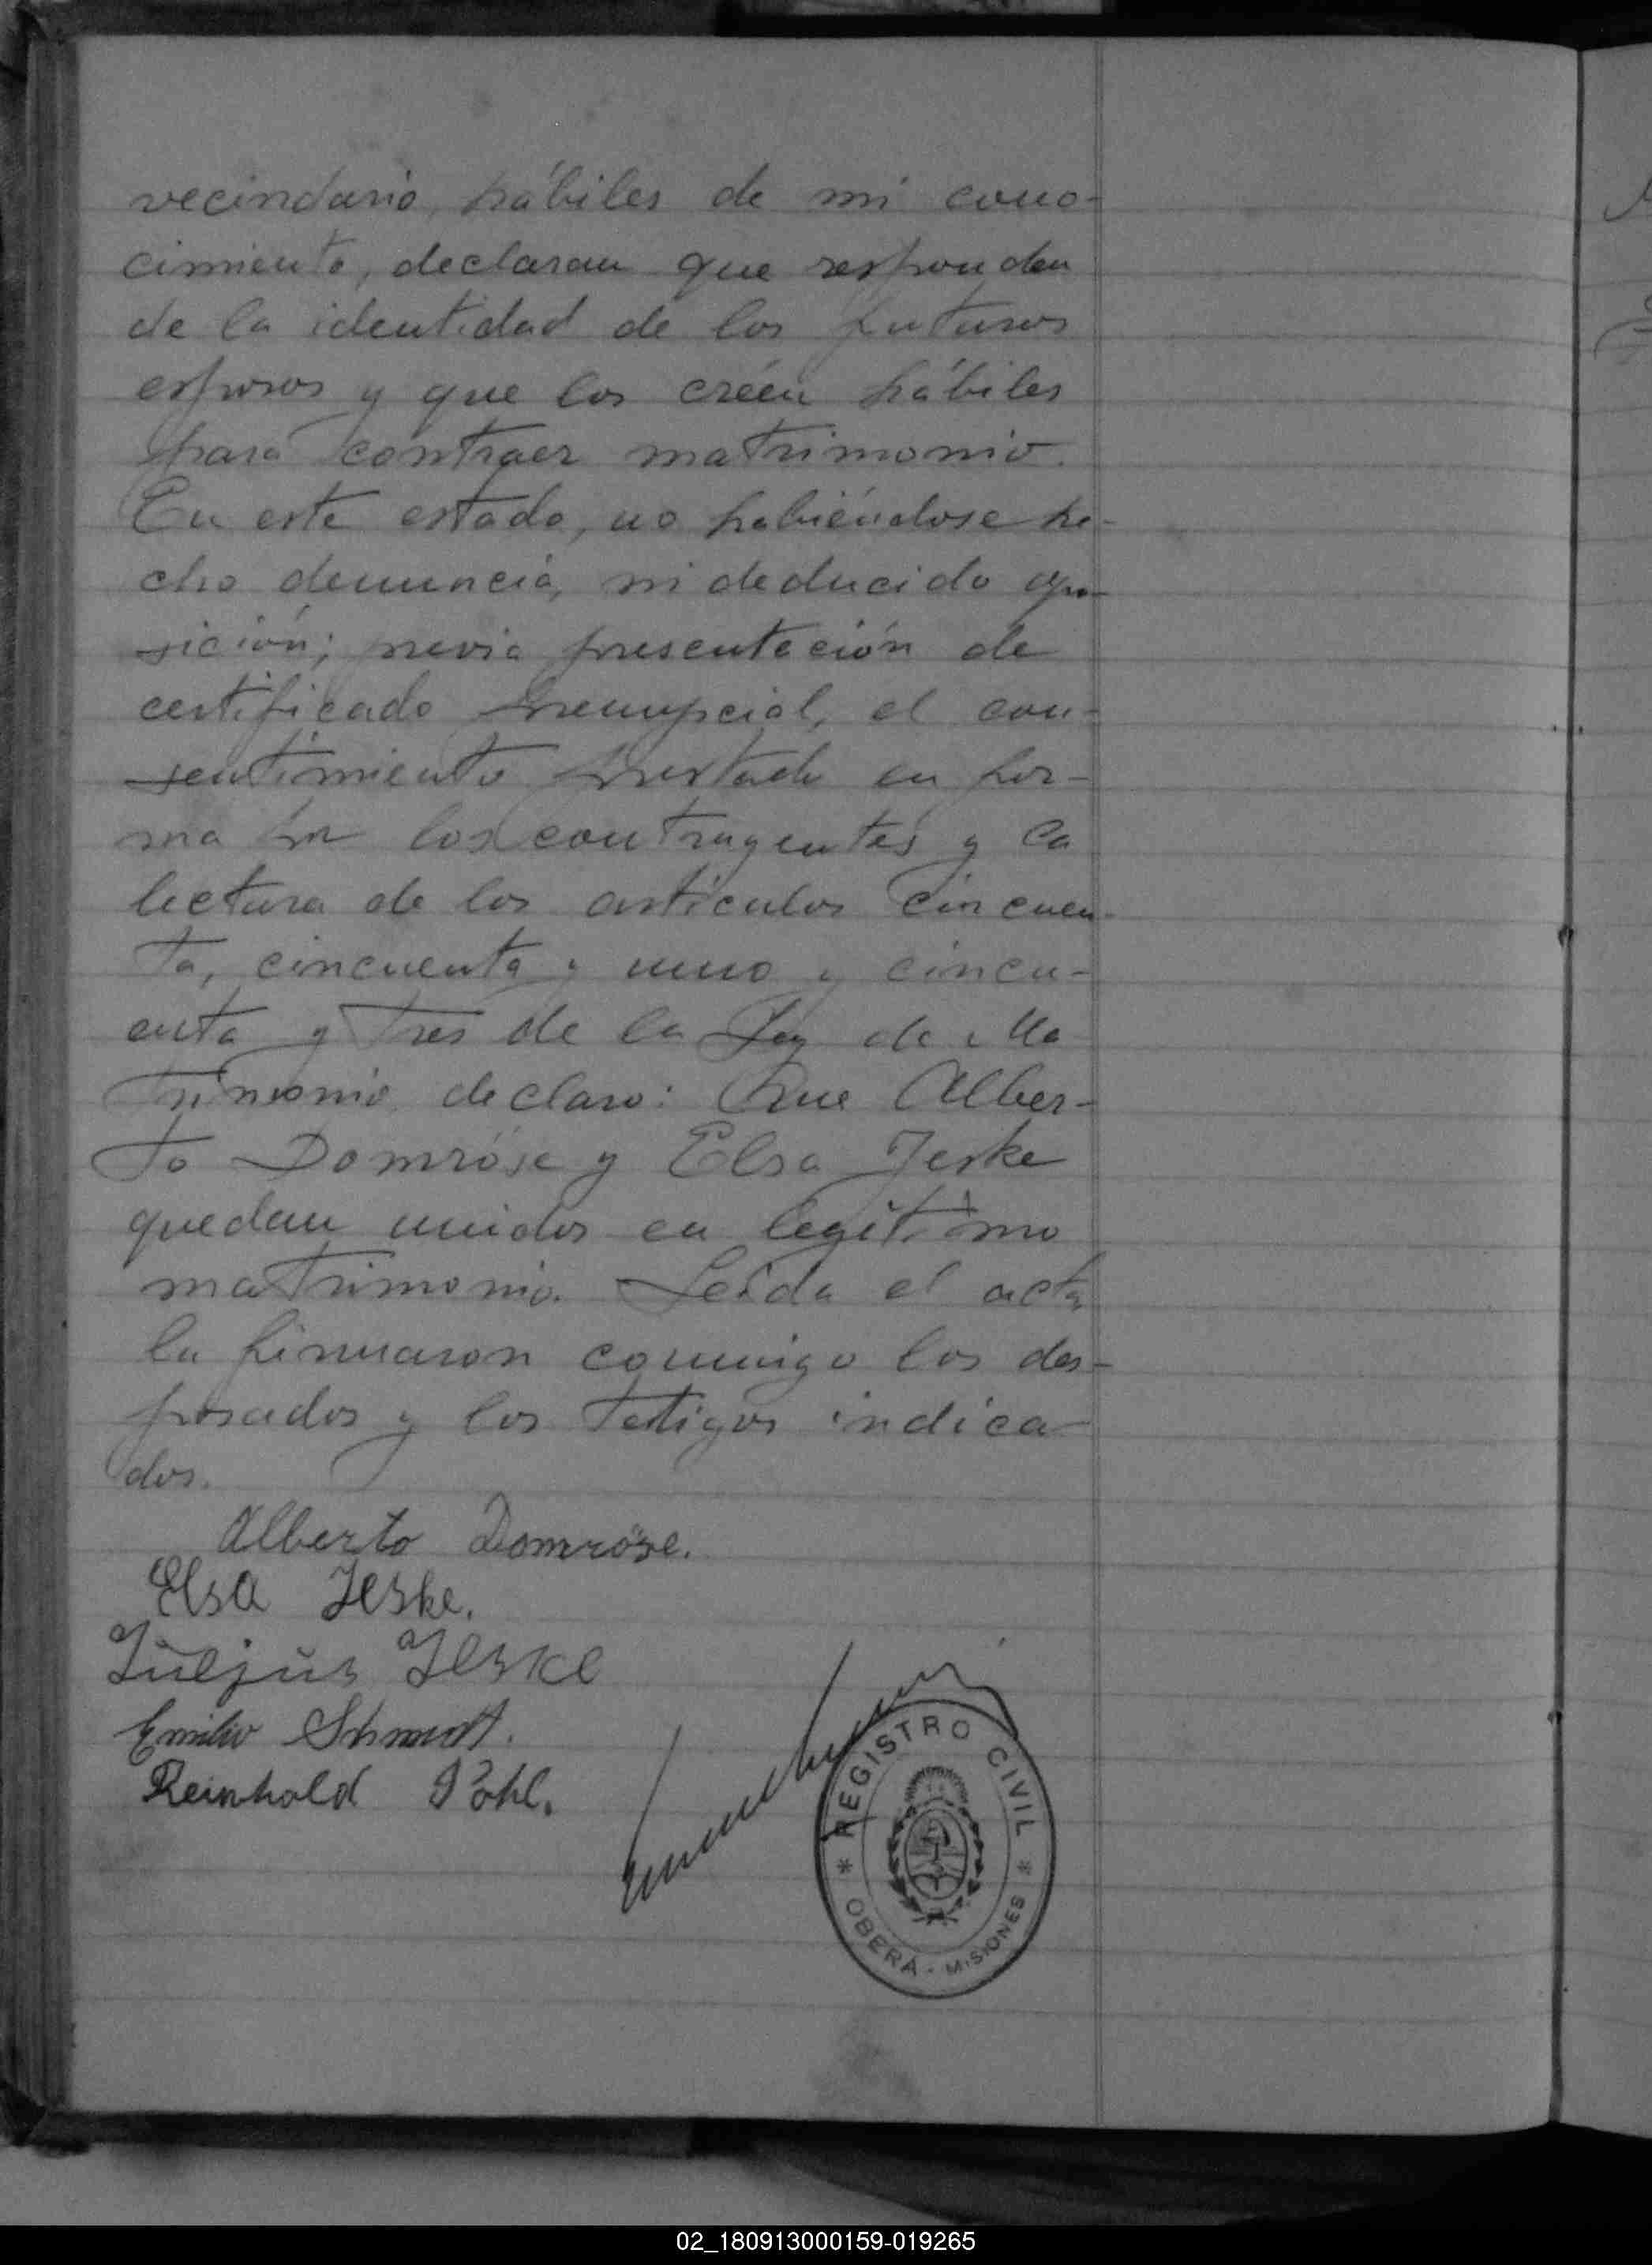 vecindario, hábiles de mi cono-
cimiento, declaran que responden
de la identidad de los futuros
esposos y que los créen hábiles
para contraer matrimonio.
En este estado, no habiéndose he-
cho denuncia, ni deducido opo-
sición; previa presentación de
certificado prenupcial, el con-
sentimiento prestado en for-
ma por los contrayentes y la
lectura de los artículos cincuen-
ta, cincuenta y uno y cincu-
enta y tres de la Ley de Ma
trimonio declaro: Que Alber-
to Domröse y Elsa Jeske
quedan unidos en legítimo
matrimonio. Leída el acta
la firmaron conmigo los des-
posados y los testigos indica-
dos.
Alberto Domröse.
Elsa Jeske.
Juljus Jeske
Emilio Schmidt.
Reinhold Pöhl.
REGISTRO CIVIL
* OBERÁ - MISIONES *
02_180913000159-019265